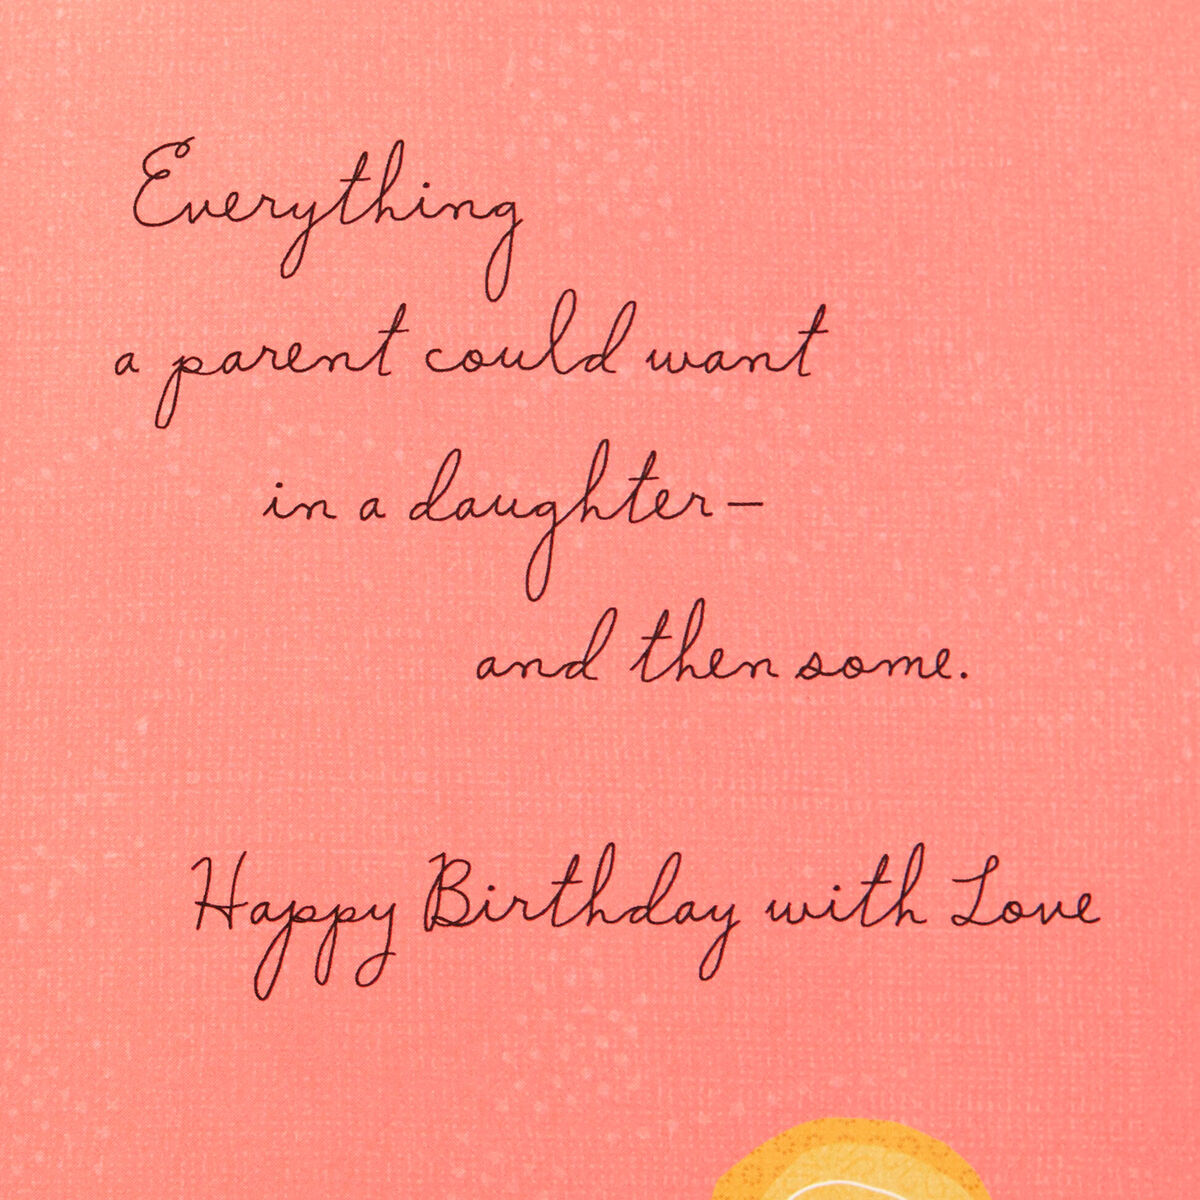 Everything
a parent could want
in a daughter—
and then some.
Happy Birthday with Love